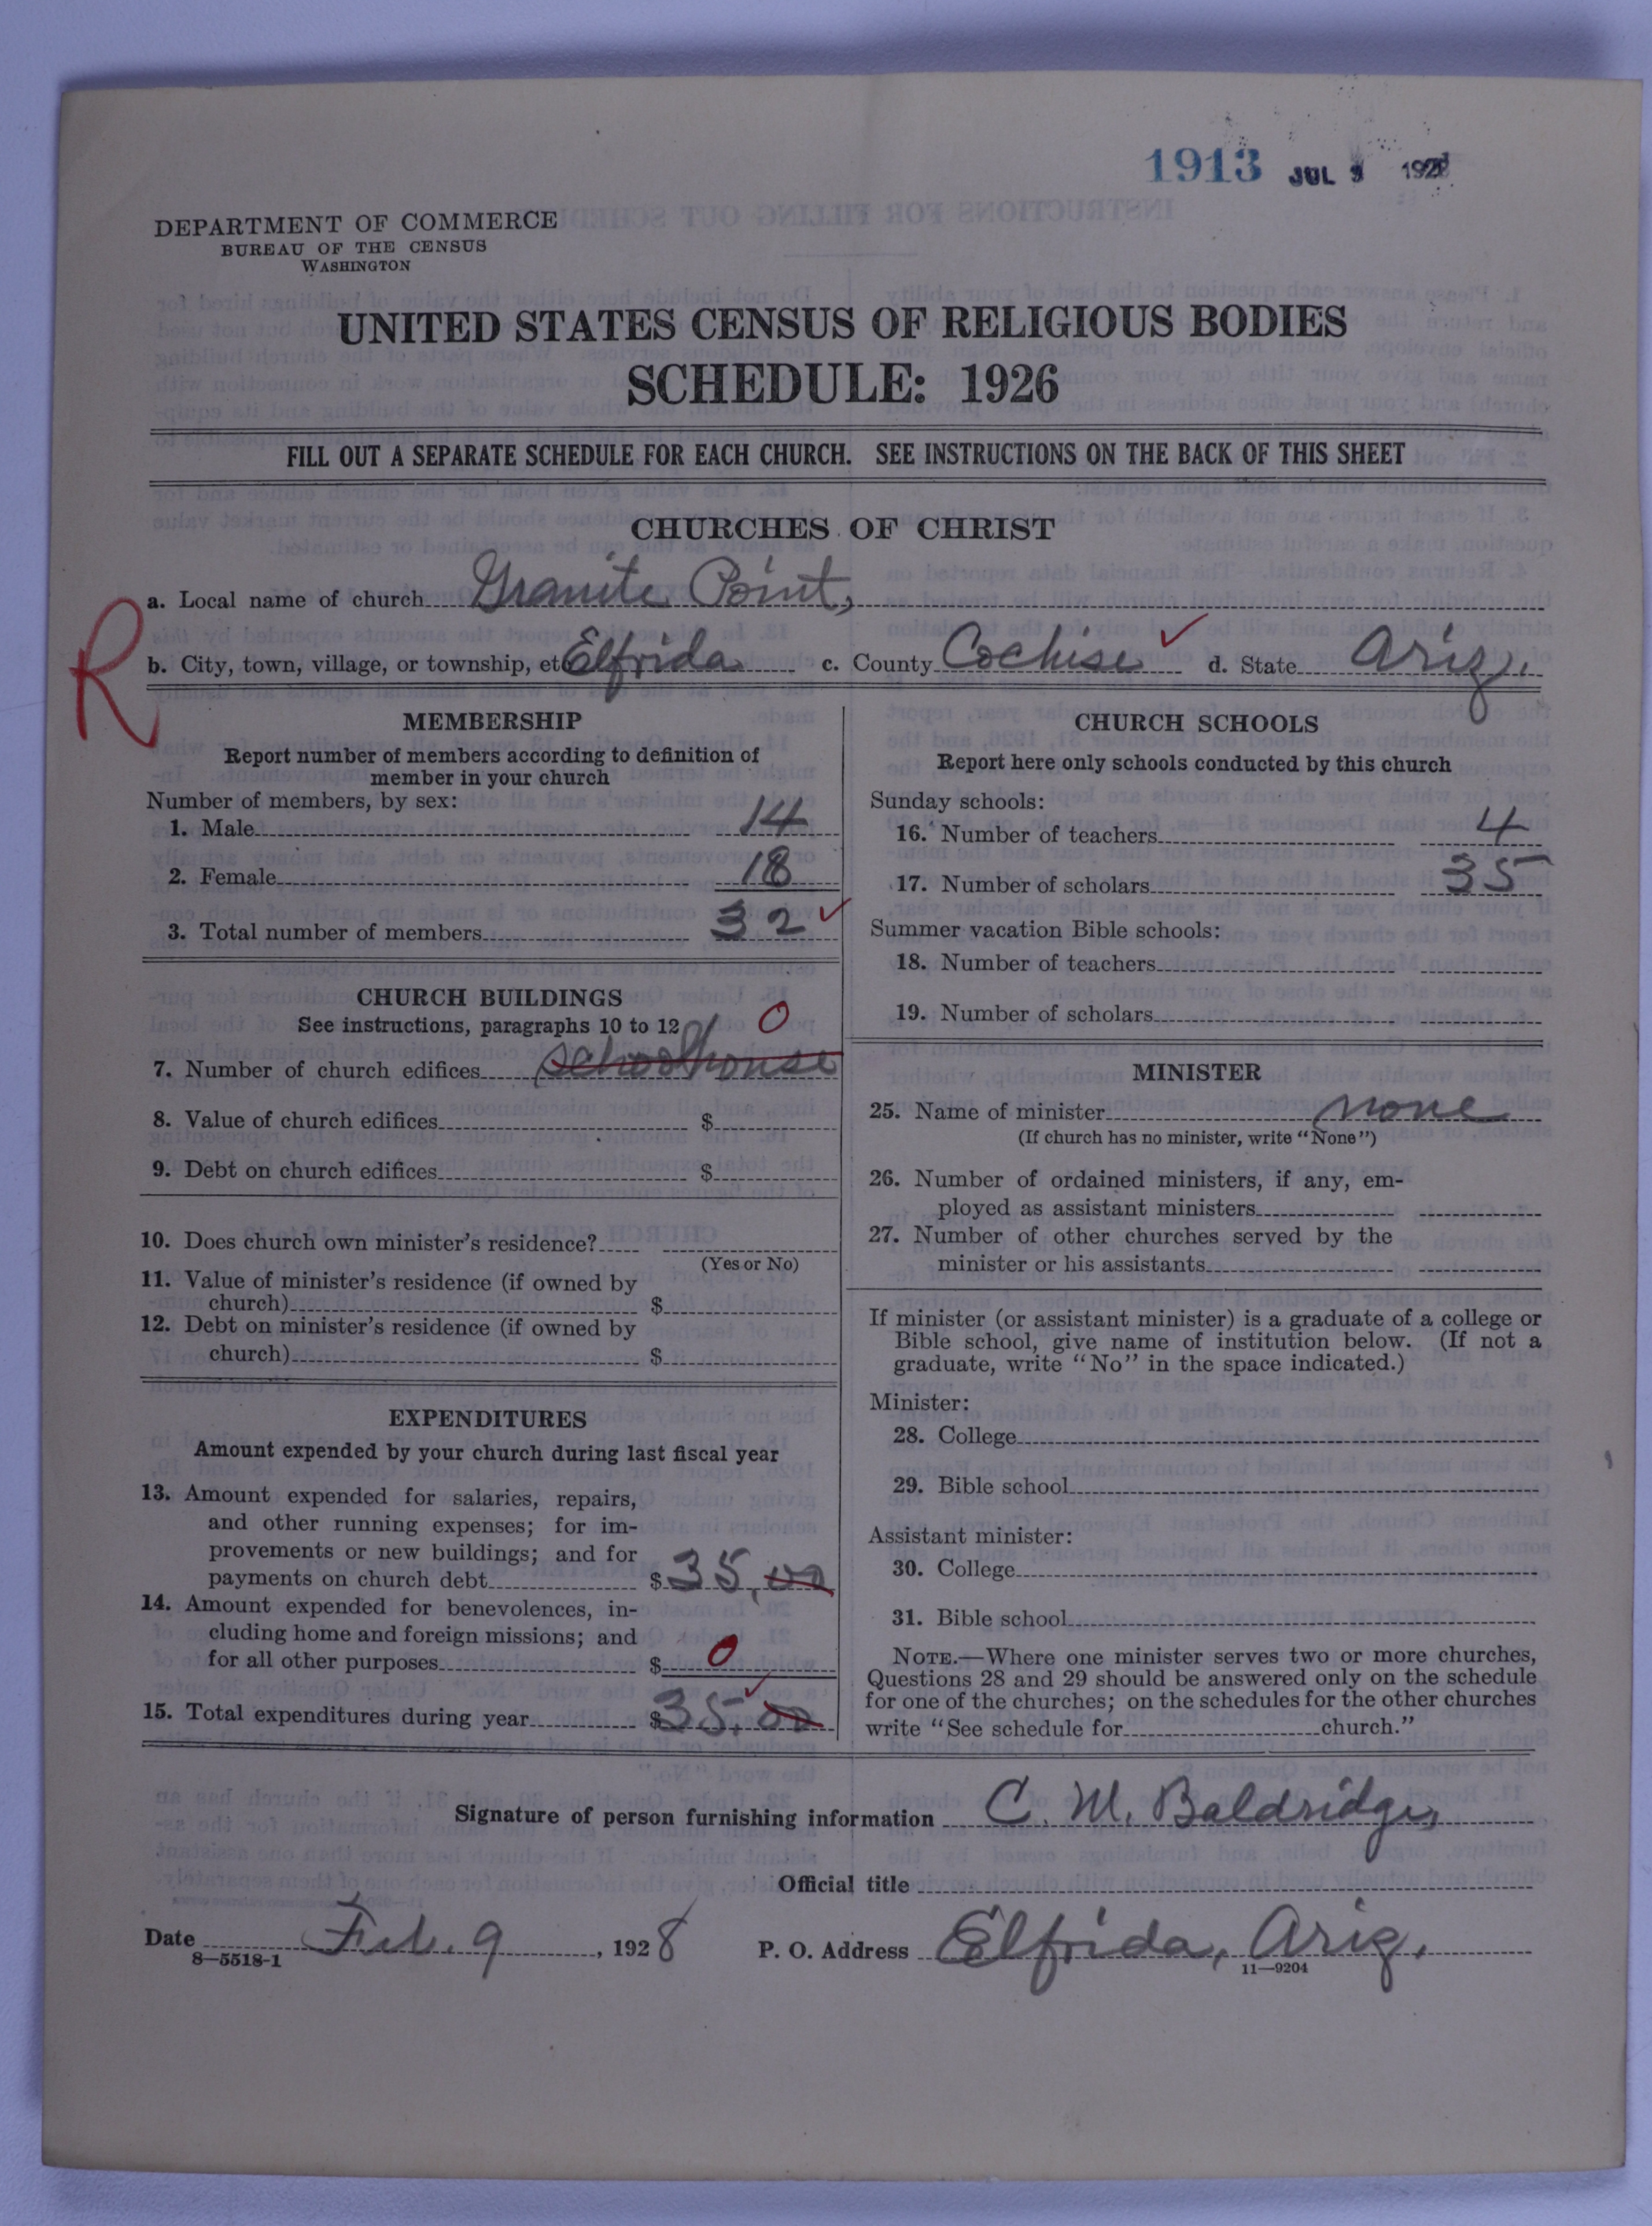 1913 JUL 9 1928
DEPARTMENT OF COMMERCE
BUREAU OF THE CENSUS
WASHINGTON
UNITED STATES CENSUS OF RELIGIOUS BODIES
SCHEDULE: 1926
FILL OUT A SEPARATE SCHEDULE FOR EACH CHURCH. SEE INSTRUCTIONS ON THE BACK OF THIS SHEET
CHURCHES OF CHRIST
a. Local name of church Granite Point,
R
b. City, town, village, or township, etc Elfrida c. County Cochise ✓ d. State Ariz.
MEMBERSHIP
Report number of members according to definition of
member in your church
Number of members, by sex:
1. Male 14
2. Female 18
3. Total number of members 32 ✓
CHURCH BUILDINGS
See instructions, paragraphs 10 to 12 0
7. Number of church edifices schoolhouse
8. Value of church edifices $
9. Debt on church edifices $
10. Does church own minister's residence?
(Yes or No)
11. Value of minister's residence (if owned by
church) $
12. Debt on minister's residence (if owned by
church) $
EXPENDITURES
Amount expended by your church during last fiscal year
13. Amount expended for salaries, repairs,
and other running expenses; for im-
provements or new buildings; and for
payments on church debt $ 35.00
14. Amount expended for benevolences, in-
cluding home and foreign missions; and
for all other purposes $ 0
15. Total expenditures during year $ 35.00 ✓
CHURCH SCHOOLS
Report here only schools conducted by this church
Sunday schools:
16. Number of teachers 4
17. Number of scholars 35
Summer vacation Bible schools:
18. Number of teachers
19. Number of scholars
MINISTER
25. Name of minister none
(If church has no minister, write "None")
26. Number of ordained ministers, if any, em-
ployed as assistant ministers
27. Number of other churches served by the
minister or his assistants
If minister (or assistant minister) is a graduate of a college or
Bible school, give name of institution below. (If not a
graduate, write "No" in the space indicated.)
Minister:
28. College
29. Bible school
Assistant minister:
30. College
31. Bible school
NOTE.—Where one minister serves two or more churches,
Questions 28 and 29 should be answered only on the schedule
for one of the churches; on the schedules for the other churches
write "See schedule for church."
Signature of person furnishing information C. M. Baldridge,
Official title
Date Feb. 9, 1928 P. O. Address Elfrida, Ariz.
8—5518-1 11—9204